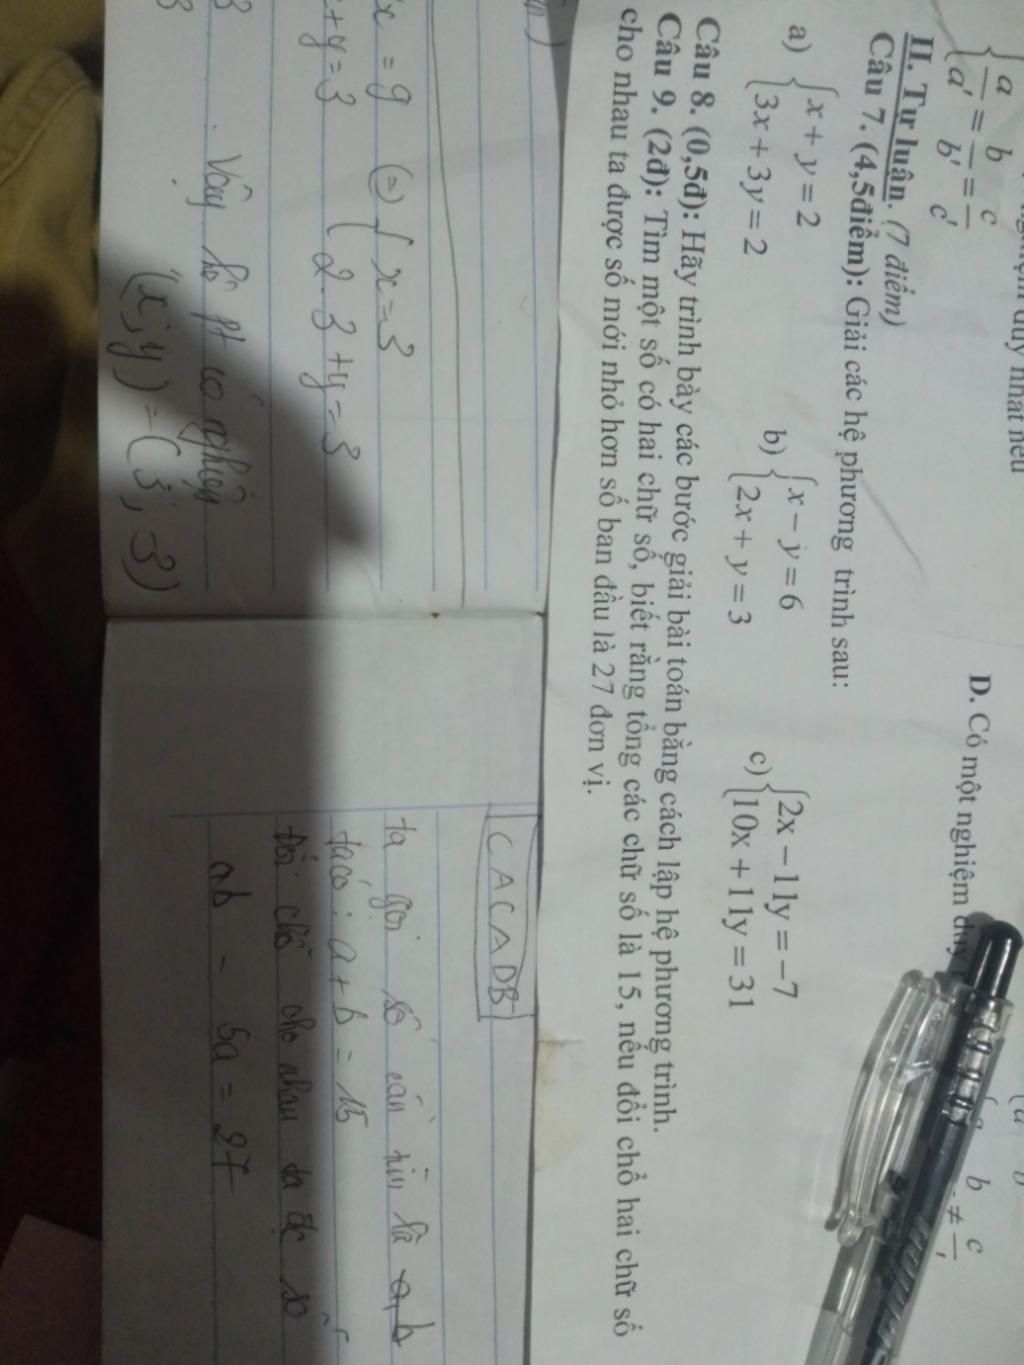 {a/a' = b/b' = c/c'
nhất nếu
D. Có một nghiệm duy
b ≠ c
II. Tự luận. (7 điểm)
Câu 7. (4,5điểm): Giải các hệ phương trình sau:
a) {x + y = 2
3x + 3y = 2
b) {x − y = 6
2x + y = 3
c) {2x − 11y = −7
10x + 11y = 31
Câu 8. (0,5đ): Hãy trình bày các bước giải bài toán bằng cách lập hệ phương trình.
Câu 9. (2đ): Tìm một số có hai chữ số, biết rằng tổng các chữ số là 15, nếu đổi chỗ hai chữ số
cho nhau ta được số mới nhỏ hơn số ban đầu là 27 đơn vị.
x = 9 (=) { x = 3
x + y = 3 { 2.3 + y = 3
Vậy hệ pt có nghiệm
(x; y) = (3; -3)
CACADB
ta gọi số cần tìm là ab
ta có: a + b = 15
đổi chỗ cho nhau ta đc số
ab - ba = 27